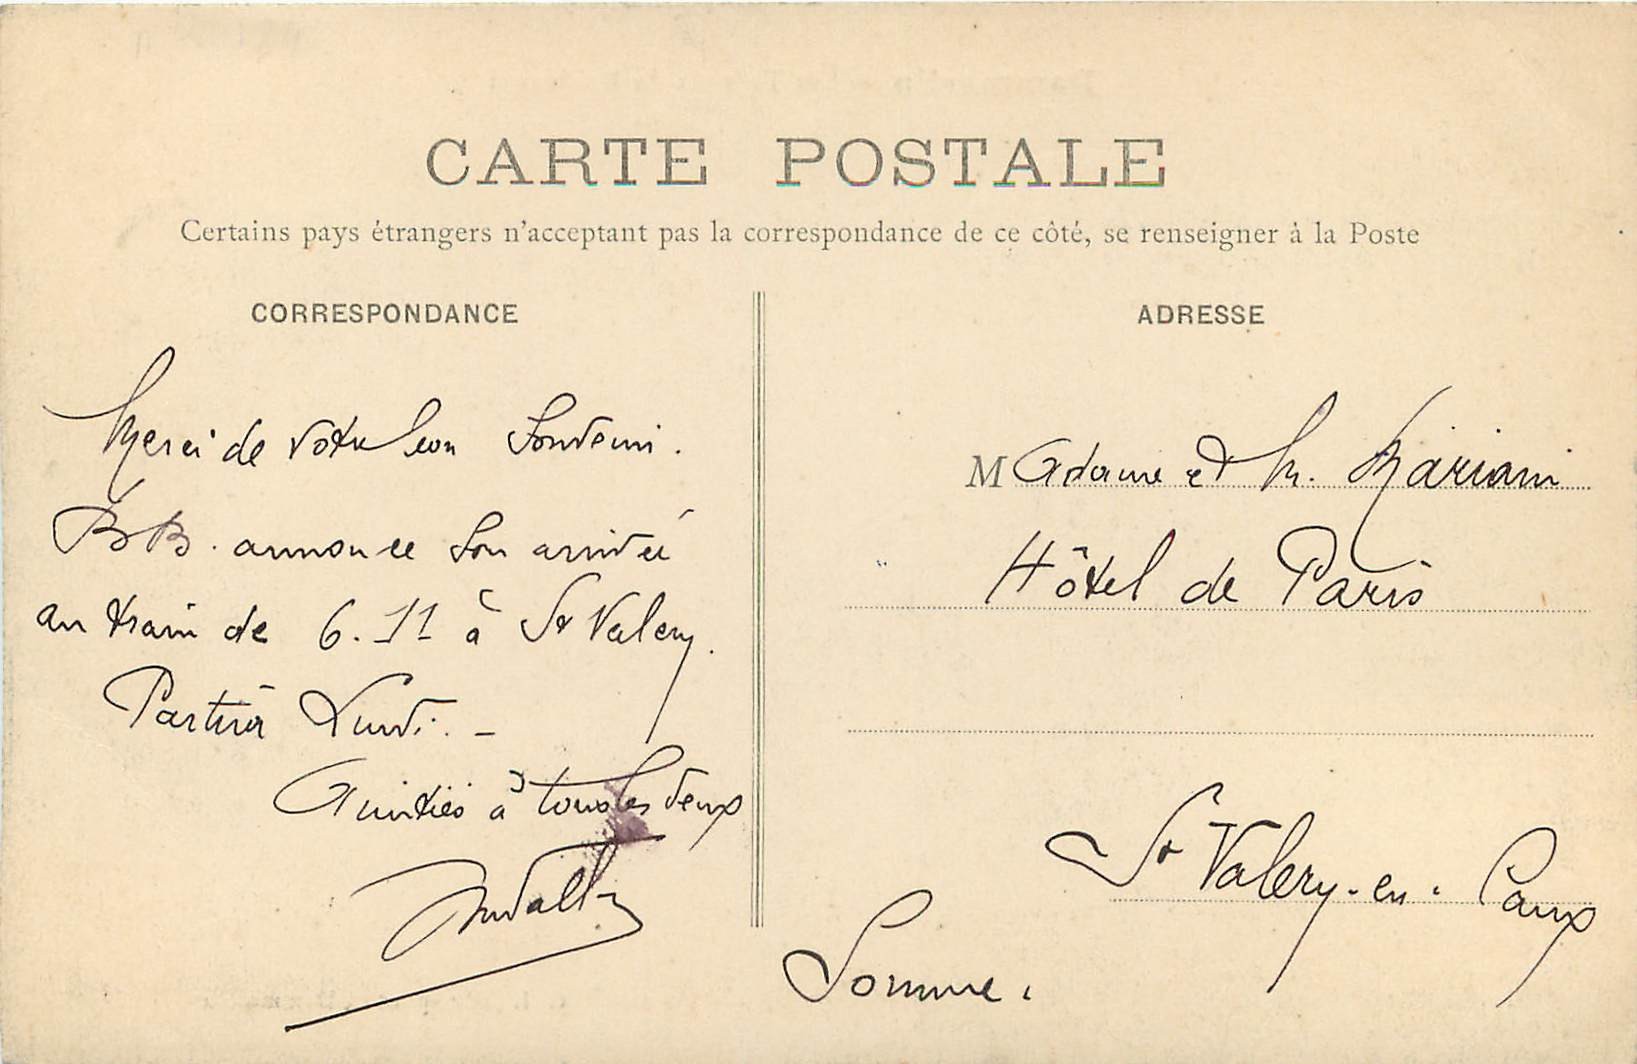 CARTE POSTALE
Certains pays étrangers n'acceptant pas la correspondance de ce côté, se renseigner à la Poste
CORRESPONDANCE
Merci de votre bon souvenir.
BB. annonce son arrivée
au train de 6.11 à St Valery.
Partira Lundi. -
Amitiés à tous les deux
ADRESSE
Madame et M. Mariani
Hôtel de Paris
St Valery-en-Caux
Somme.